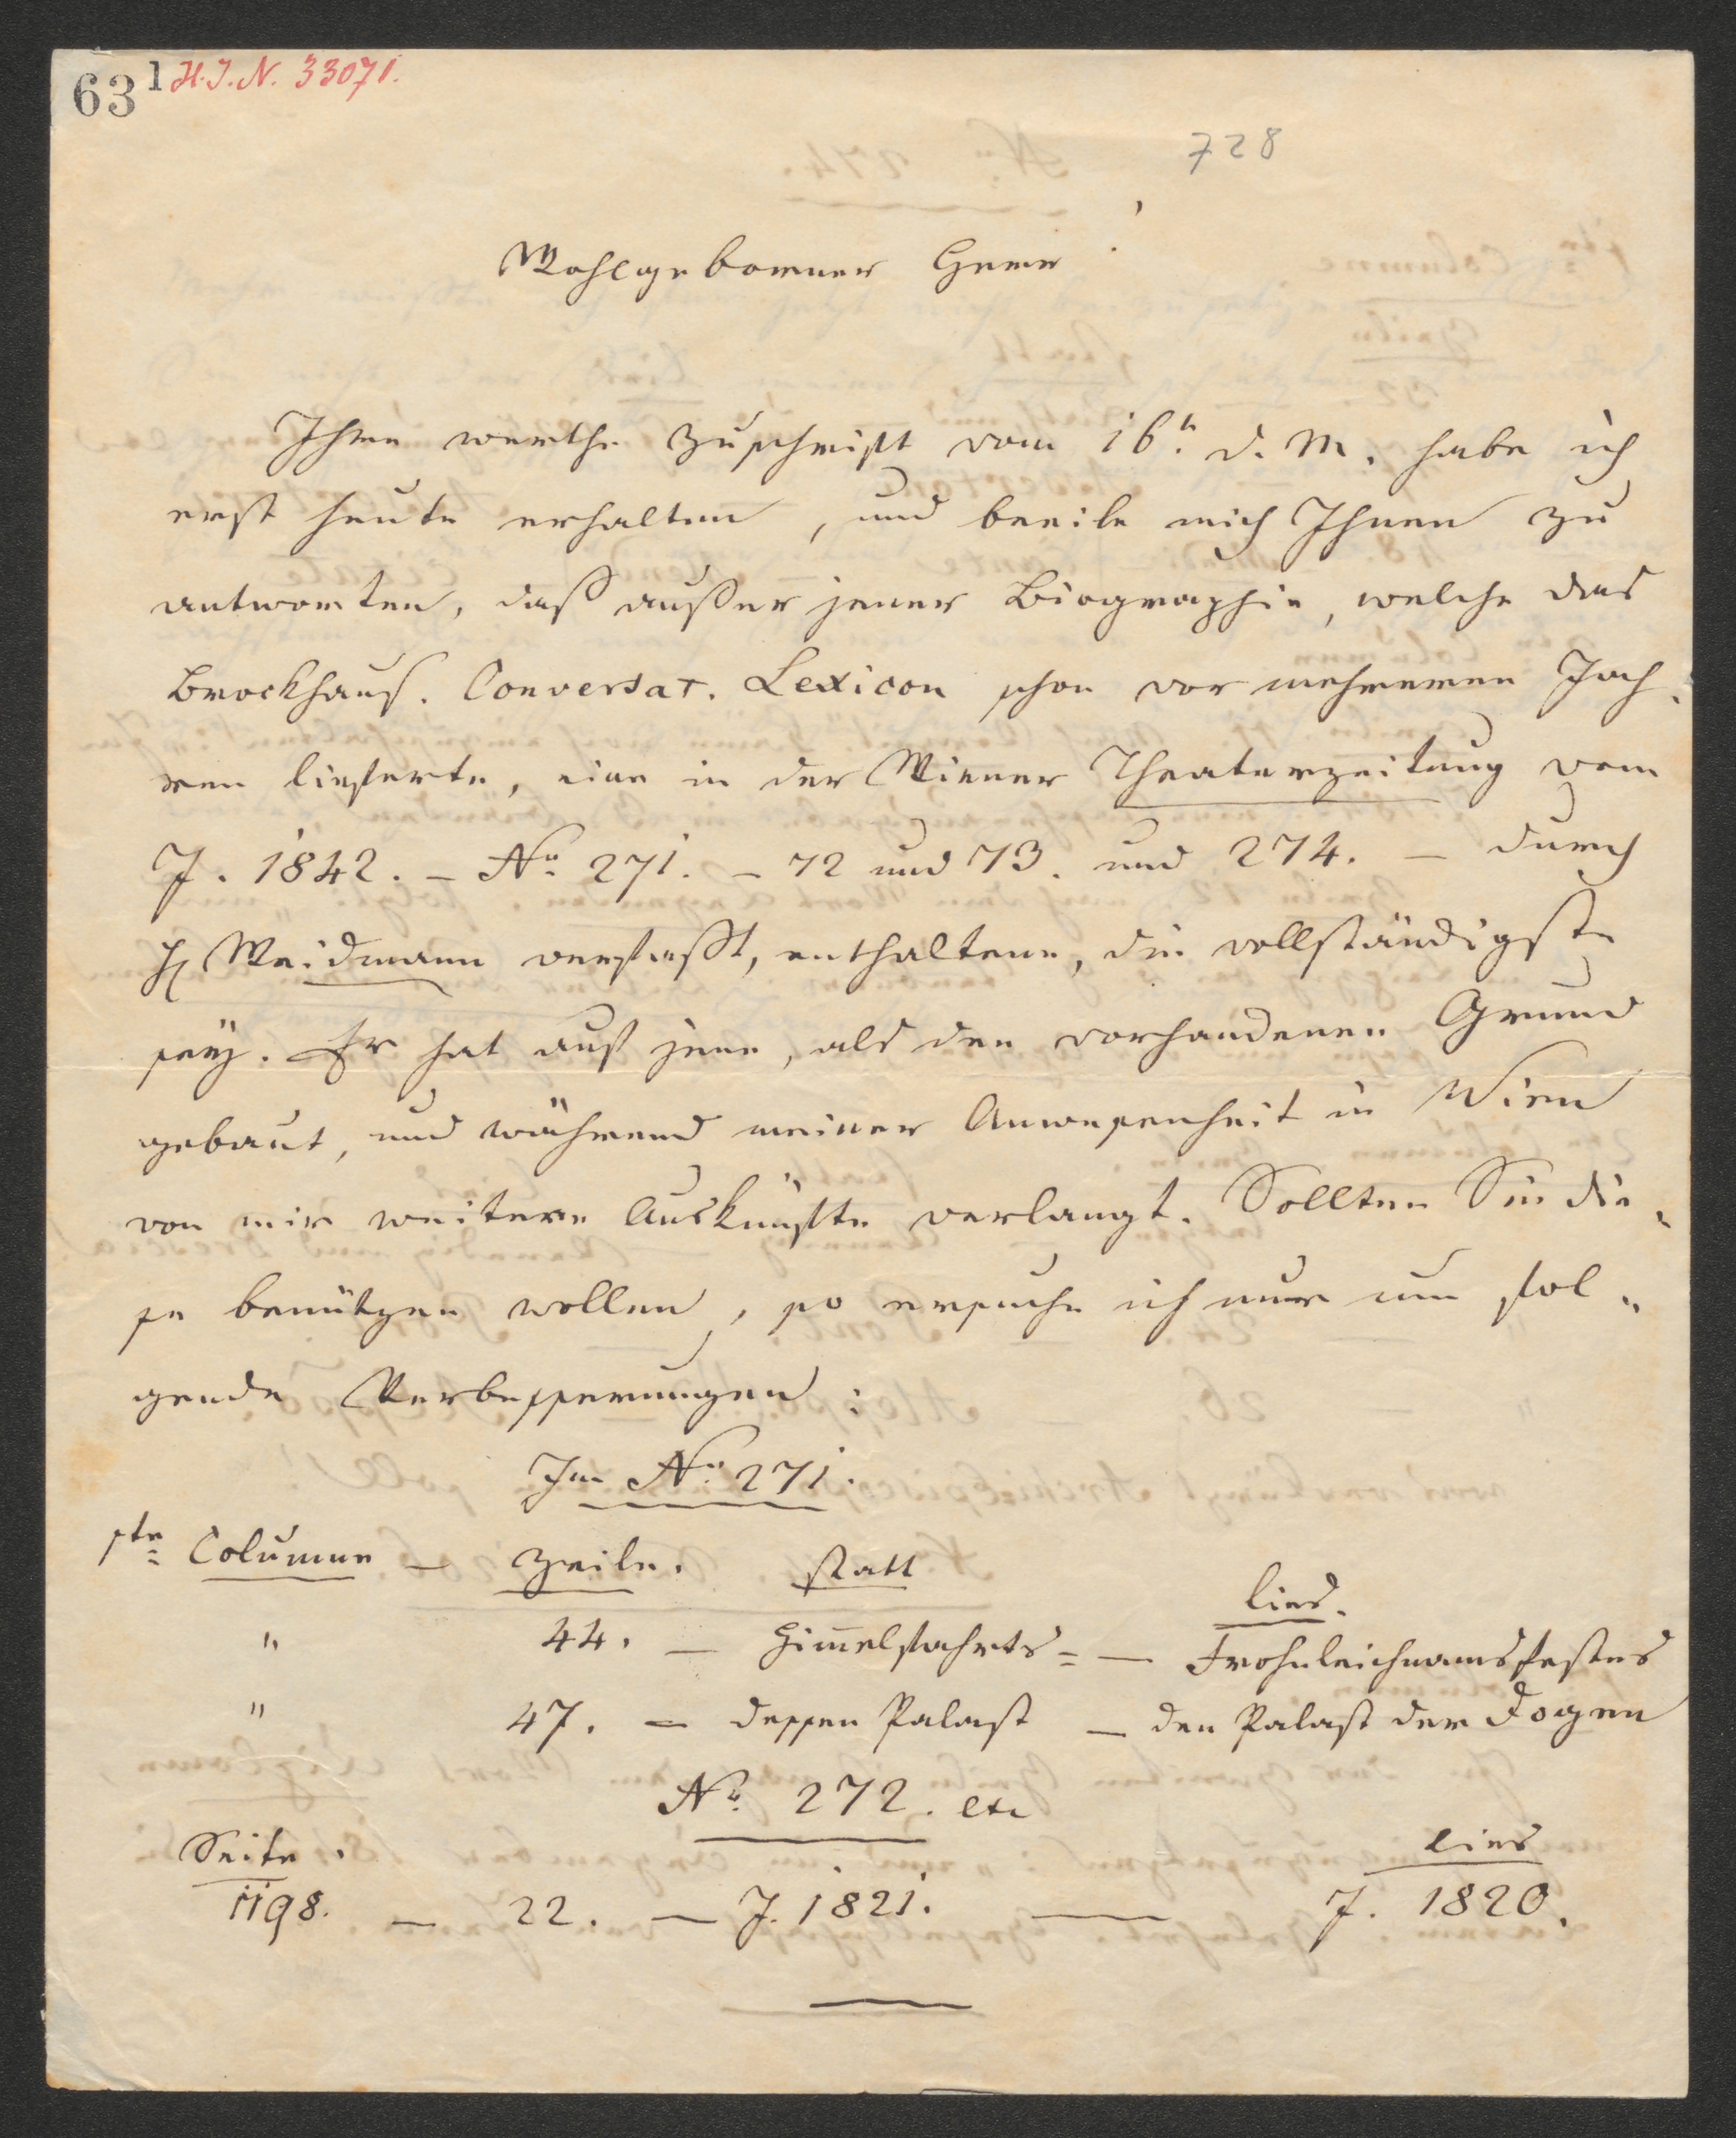 63
1
H.I.N. 33071.
728
Wohlgeborner Herr!
Ihre werthe Zuschrift vom 16n. d. M. habe ich
erst heute erhalten, und beeile mich Ihnen zu
antworten, daß außer jener Biographie, welche das
Brockhaus. Conversat. Lexicon schon vor mehreren Jah-
ren lieferte, eine in der Wiener Theaterzeitung vom
J. 1842. – No. 271. – 72 und 73. und 274. – durch
H Weidmann verfaßt, enthaltene, die vollständigste
sey. Er hat auf jene, als den vorhandenen Grund
gebaut, und während meiner Anwesenheit in Wien
von mir weitere Auskünfte verlangt. Sollten Sie die-
se benützen wollen, so ersuche ich nur um fol-
gende Verbesserungen:
Im No. 271.
1te Columne – Zeile. statt lies.
" 44. – Him̄elfahrts= – Frohnleichnamsfestes
" 47. – dessen Palast – den Palast der Dogen
No. 272. etc
Seite. lies
1198. – 22. – J. 1821. – J. 1820.